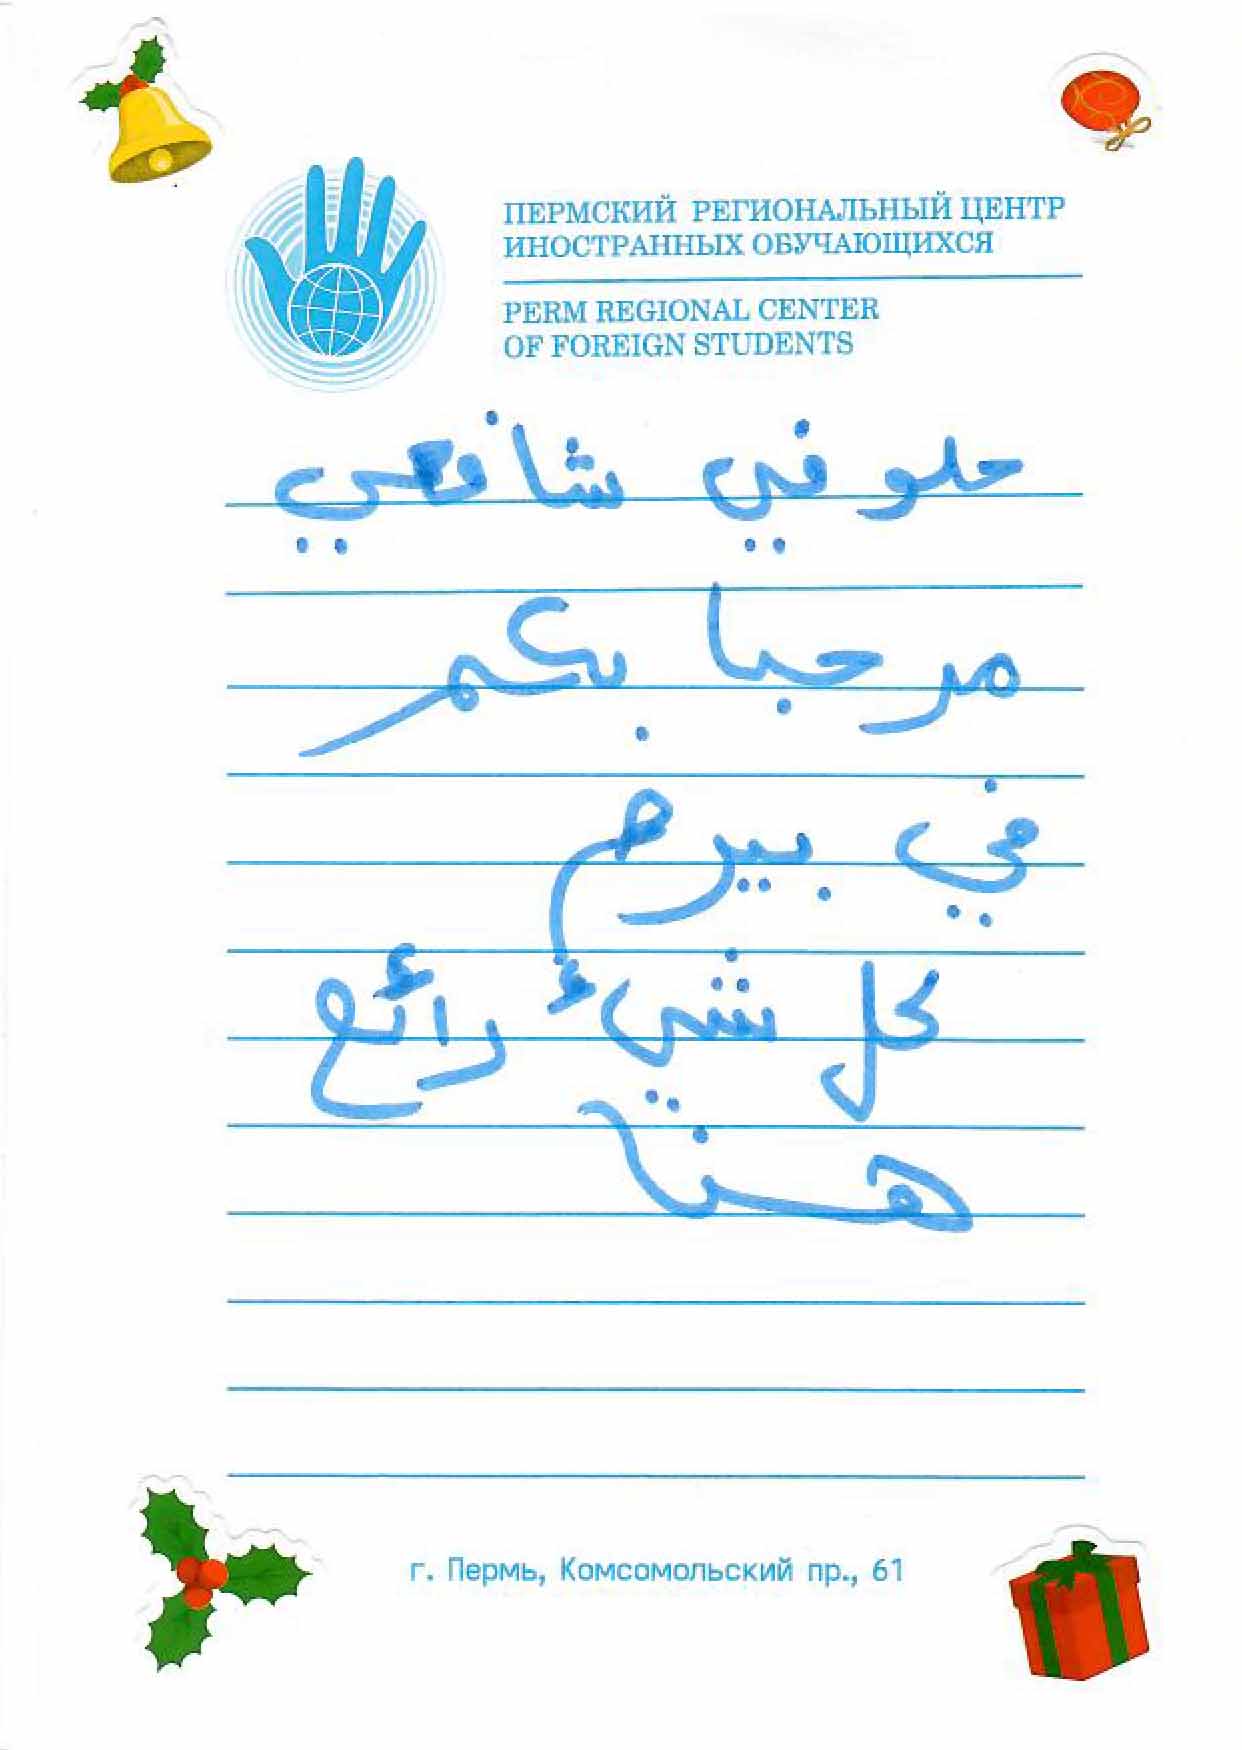 ПЕРМСКИЙ РЕГИОНАЛЬНЫЙ ЦЕНТР
ИНОСТРАННЫХ ОБУЧАЮЩИХСЯ
PERM REGIONAL CENTER
OF FOREIGN STUDENTS
حلو في شافعي
مرحبا بكم
في بيرم
كل شيئ رائع
هنا
г. Пермь, Комсомольский пр., 61